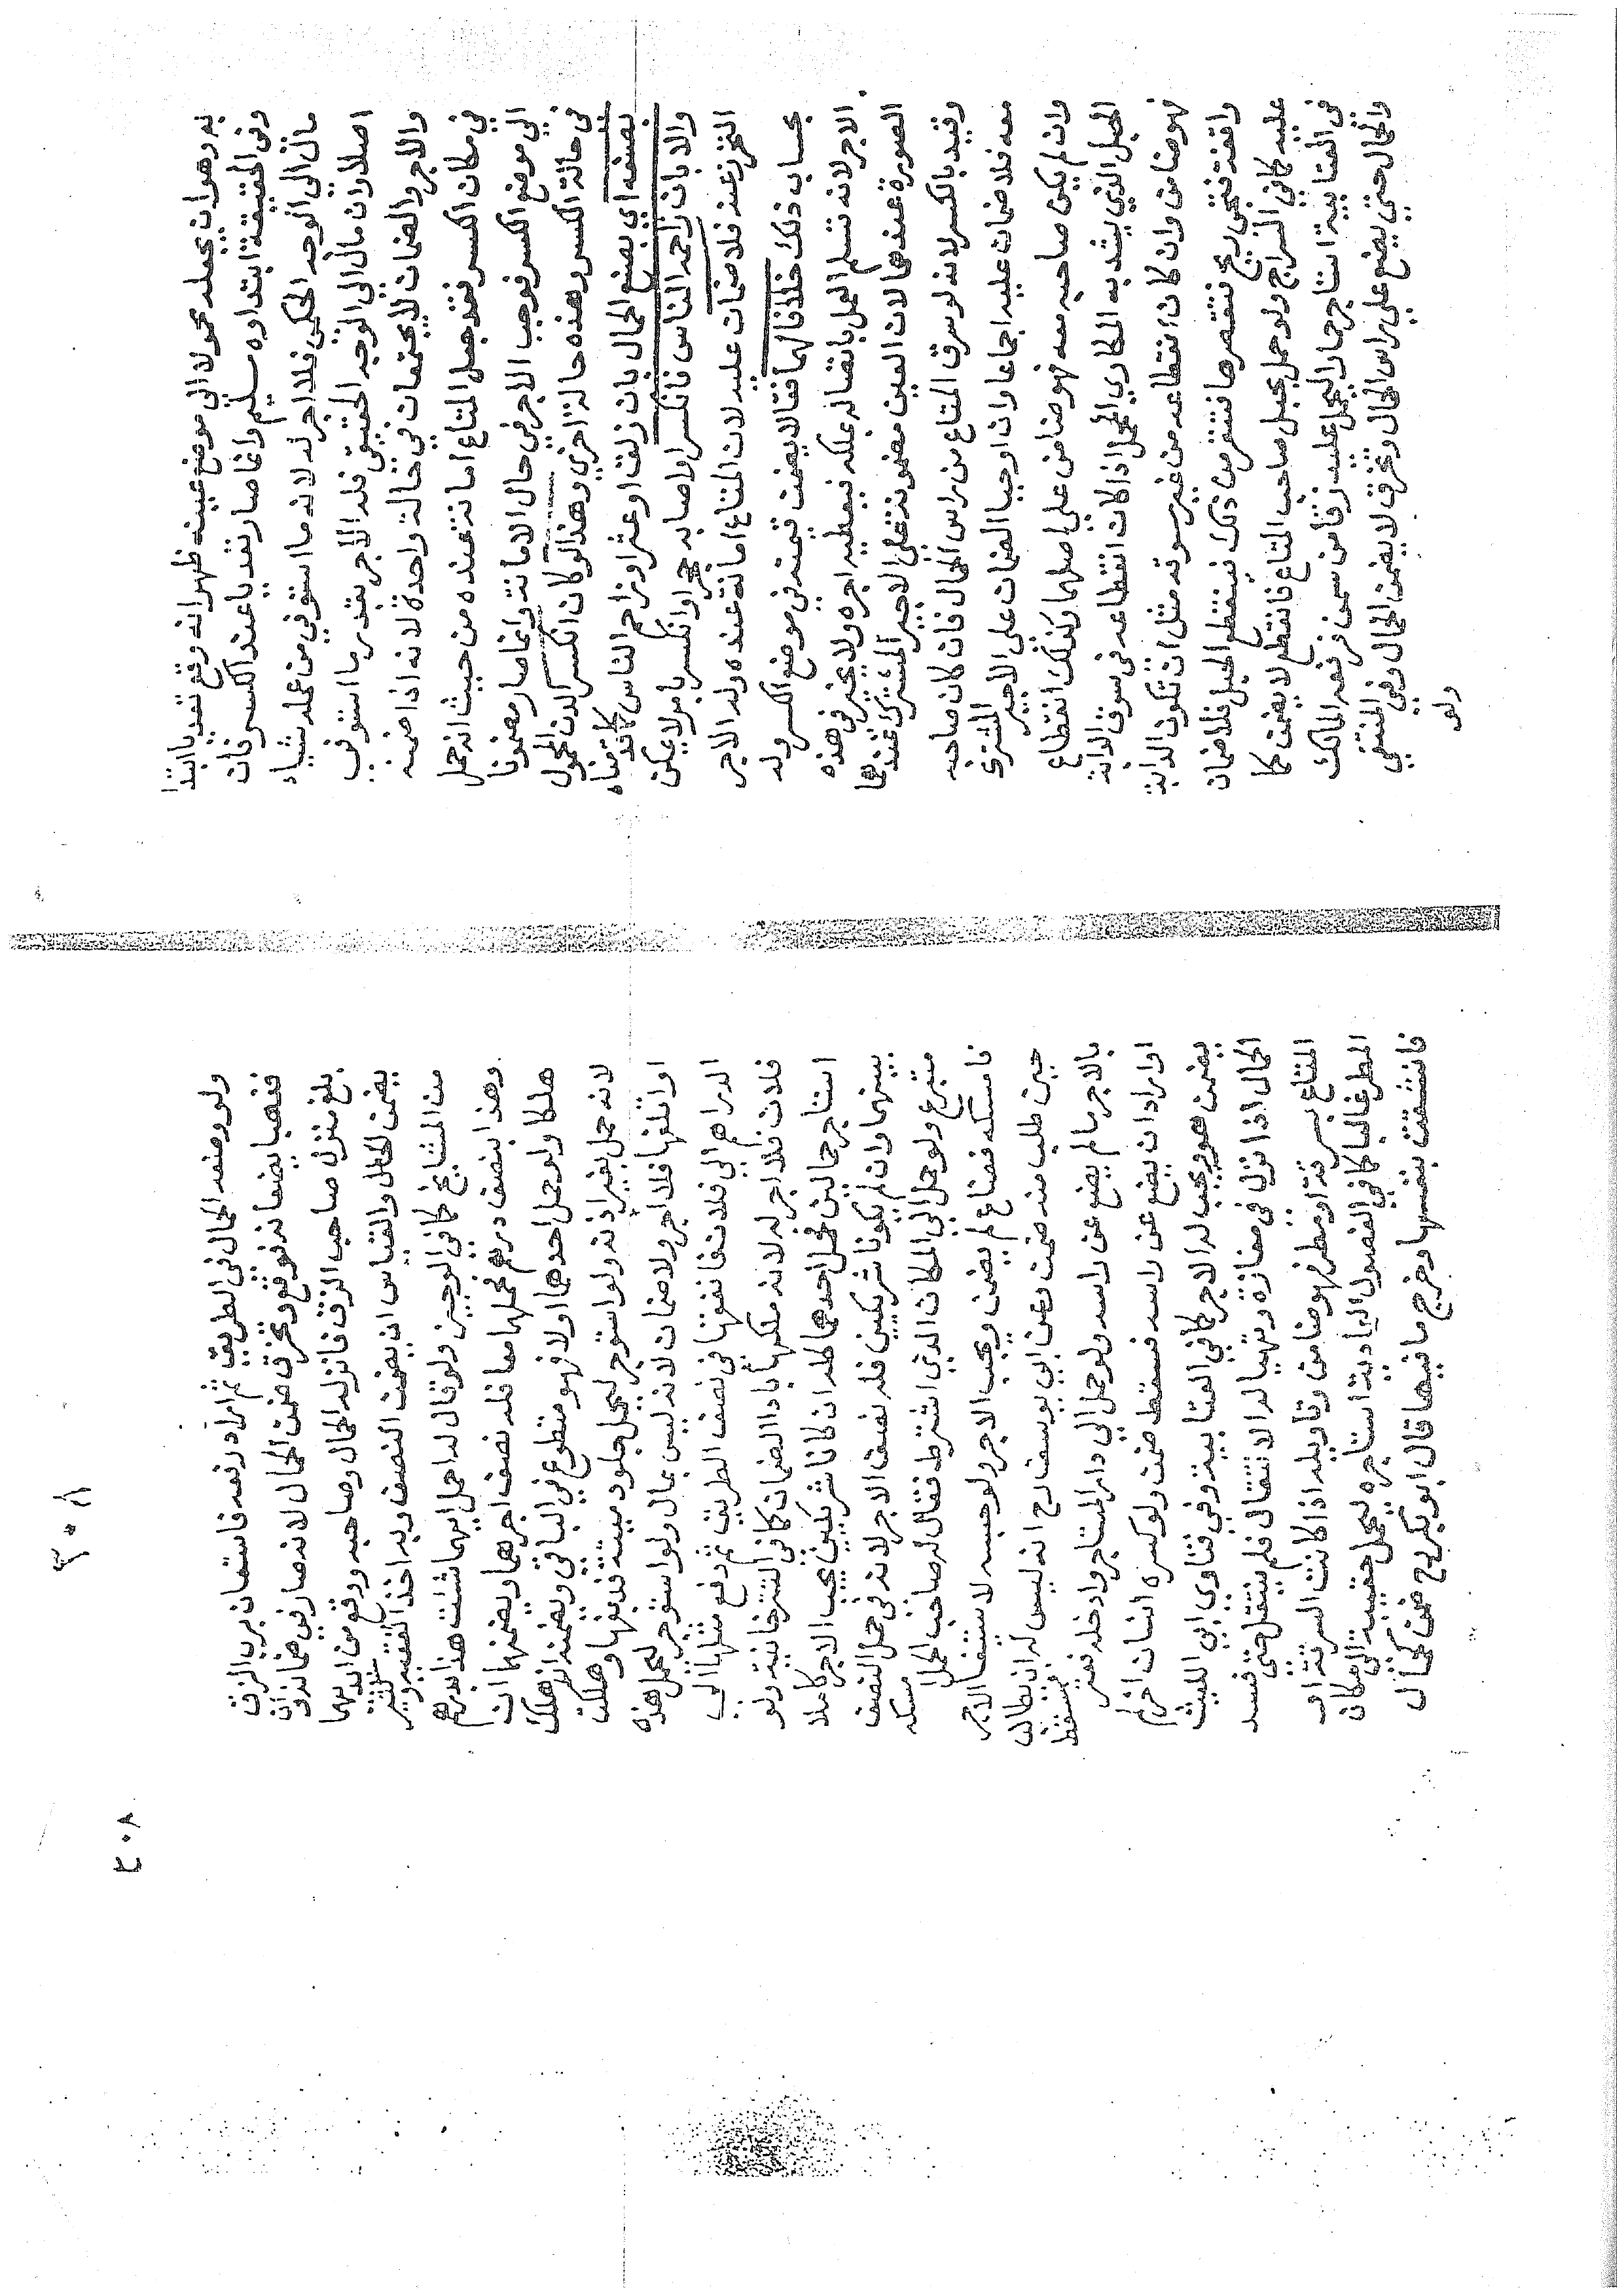 به وهو ان يجعله محمولا الى موضع عينه ظهر انه وقع تعديا ابتدا
وفي الحقيقة ابتداوه سليم وانما صار تعديا عند الكسر فان
مال الى الوجه الحكمي فلا اجر له لانه ما استوفي من عمله شيئا
اصلا وان مال الي الوجه الحقيقي فله الاجر بقدر ما استوفي
والاجر والضمان لا يجتمعان في حالة واحدة لانه اذا ضمنه
في مكان الكسر فقد جعل المتاع امانة عنده من حيث انه حمل
الي موضع الكسر فوجب الاجر في حال الامانة وانما صار مضمونا
في حالة الكسر وهذه حالة اخري وهذا لو كان الكسر لدن المحمول
بصنعه اي بصنع الحمال بان زلق او عثر او زاحم الناس كما قدمناه
والا بان زاحمه الناس فانكسر او اصابه حجر او انكسر بامر لا يمكن
التحرز عنه فلا ضمان عليه لان المتاع امانة عنده وله الاجر
بحساب ذلك خلافا لهما فقالا يضمن قيمته في موضع الكسر وله
الاجر لانه تسلم العمل باتصاله بملكه فيعطيه اجره ولا يخير في هذه
الصورة عندهما لان العين مضمونة علي الاجير المشترك عندهما
وقيد بالكسر لانه لو سرق المتاع من راس الحمال فان كان صاحبه
معه فلا ضمان عليه اجماعا وان اوجبا الضمان على الاجير المشترك
وان لم يكن صاحبه معه فهو ضامن علي اصلهما وكذلك انقطاع
الحبل الذي يشد به المكاري الحمل اذا كان انقطاعه في سوق الدابة
فهو ضامن وان كان انقطاعه من غير سوقه مثل ان تكون الدابة
واقفة فتجئ ريح فتنفر من ذلك فينقطع الحبل فلا ضمان
عليه كما في السراج ولو حمل بحبل صاحب المتاع فانقطع لا يضمن كما
في العتابية استاجر حمالا ليحمل عليه زقا من سمن فرفعه المالك
والحمال حتي يضع علي راس الحمال وتخرق لا يضمن الحمال وفي المنتقي
ولو
٣٠٨
٤٠٨
ولو وضعه الحمال في الطريق ثم اراد رفعه فاستعان برب الزق
فذهبا يضعانه فوقع وتخرق ضمن الحمال لانه صار في ضمانه وان
بلغ منزل صاحب الزق فانزله الحمال وصاحبه ووقع من ايديهما
يضمن الحمال والقياس ان يضمن النصف وبه اخذ الفقيه وكثير
من المشايخ كما في الوجيز ولو قال له احمل ايهما شئت هذا بدرهم
وهذا بنصف درهم فحملهما معا فله نصف اجرهما ويضمنهما ان
هلكا ولو حمل احدهما اولا فهو متطوع في الباقي ويضمنه ان هلك
لانه حمل بغير اذنه ولو استوجر ليحمل جلود ميتة فدبغها وهلكت
او اتلفها فلا اجر ولا ضمان لانه ليس بمال ولو استوجر لحمل هذه
الدراهم الي فلان فانفقها في نصف الطريق ثم دفع مثلها الي
فلان فلا اجر له لانه ملكها باداء الضمان كما في التترخانية ولو
استاجر حمالين فحمل احدهما كله ان كانا شريكين يجب الاجر كاملا
بينهما وان لم يكونا شريكين فله نصف الاجر لانه في حمل النصف
متبرع ولو حمل الي المكان الذي اشترط فقال له صاحب الحمل امسكه
فامسكه فضاع لم يضمن ويجب الاجر ولو حبسه لاستيفا الاجر
حين طلب منه ضمن وعن ابي يوسف رح انه ليس له ان يطالب
بالاجر ما لم يضع عن راسه ولو حمل الي دار المستاجر وادخله فعثر فسقط
او اراد ان يضع عن راسه فسقط ضمن ولو كسره انسان اخر لم
يضمن هو ويجب له الاجر كما في العتابية وفي فتاوي ابي الليث
الحمال اذا نزل في مفازة وتهيا له الانتقال فلم ينتقل حتي فسد
المتاع بسرقة او مطر فهو ضامن وتاويله اذا كانت السرقة او
المطر غالبا كما في الفصول العمادية استاجره ليحمل حقيبة الي مكان
فانشقت بنفسها وخرج ما فيها قال ابو بكر رح ضمن كحمال